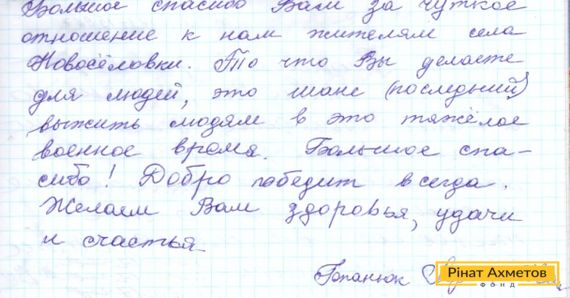 Большое спасибо Вам за чуткое
отношение к нам жителям села
Новосёловки. То что Вы делаете
для людей, это шанс (последний)
выжить людям в это тяжёлое
военное время. Большое спа-
сибо! Добро победит всегда.
Желаем Вам здоровья, удачи
и счастья
Гопанюк
Рінат Ахметов
ФОНД